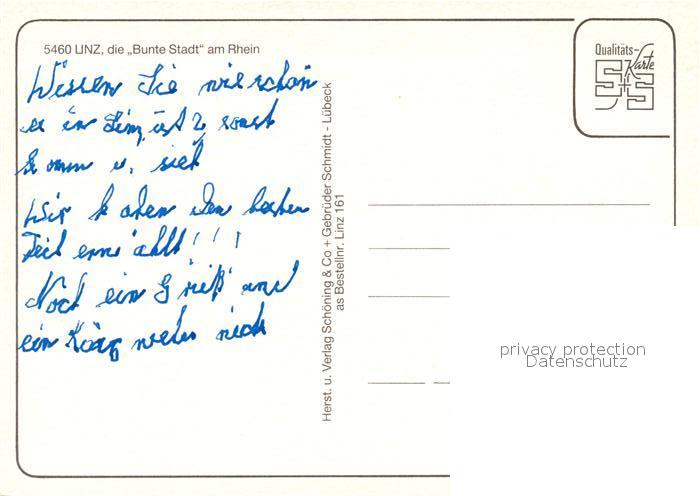 5460 LINZ, die „Bunte Stadt“ am Rhein
Wissen Sie wie schön
es in Linz ist? sonst
komm u. sieh
Wir haben den besten
Teil erwählt!!!
Noch ein Grieß und
ein mehr nich
Herst. u. Verlag Schöning & Co + Gebrüder Schmidt - Lübeck
as Bestellnr. Linz 161
Qualitäts-
Karte
S+S
privacy protection
Datenschutz